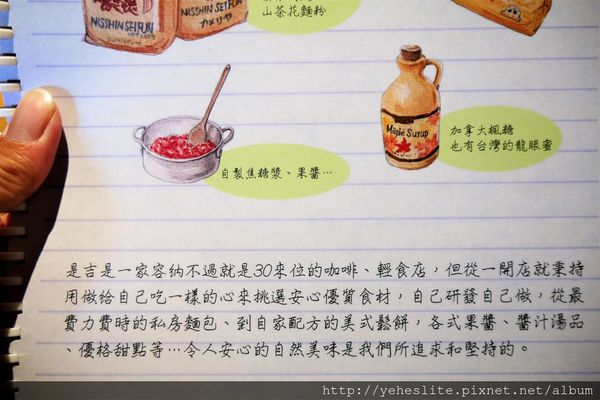 NISSHIN SEIFUN
NISSHIN SEIFUN
カメリヤ
山茶花麵粉
Maple Syrup
加拿大楓糖
也有台灣的龍眼蜜
自製焦糖漿、果醬…
是吉是一家容納不過就是30來位的咖啡、輕食店，但從一開店就秉持
用做給自己吃一樣的心來挑選安心優質食材，自己研發自己做，從最
費力費時的私房麵包、到自家配方的美式鬆餅，各式果醬、醬汁湯品
、優格甜點等…令人安心的自然美味是我們所追求和堅持的。
http://yeheslite.pixnet.net/album